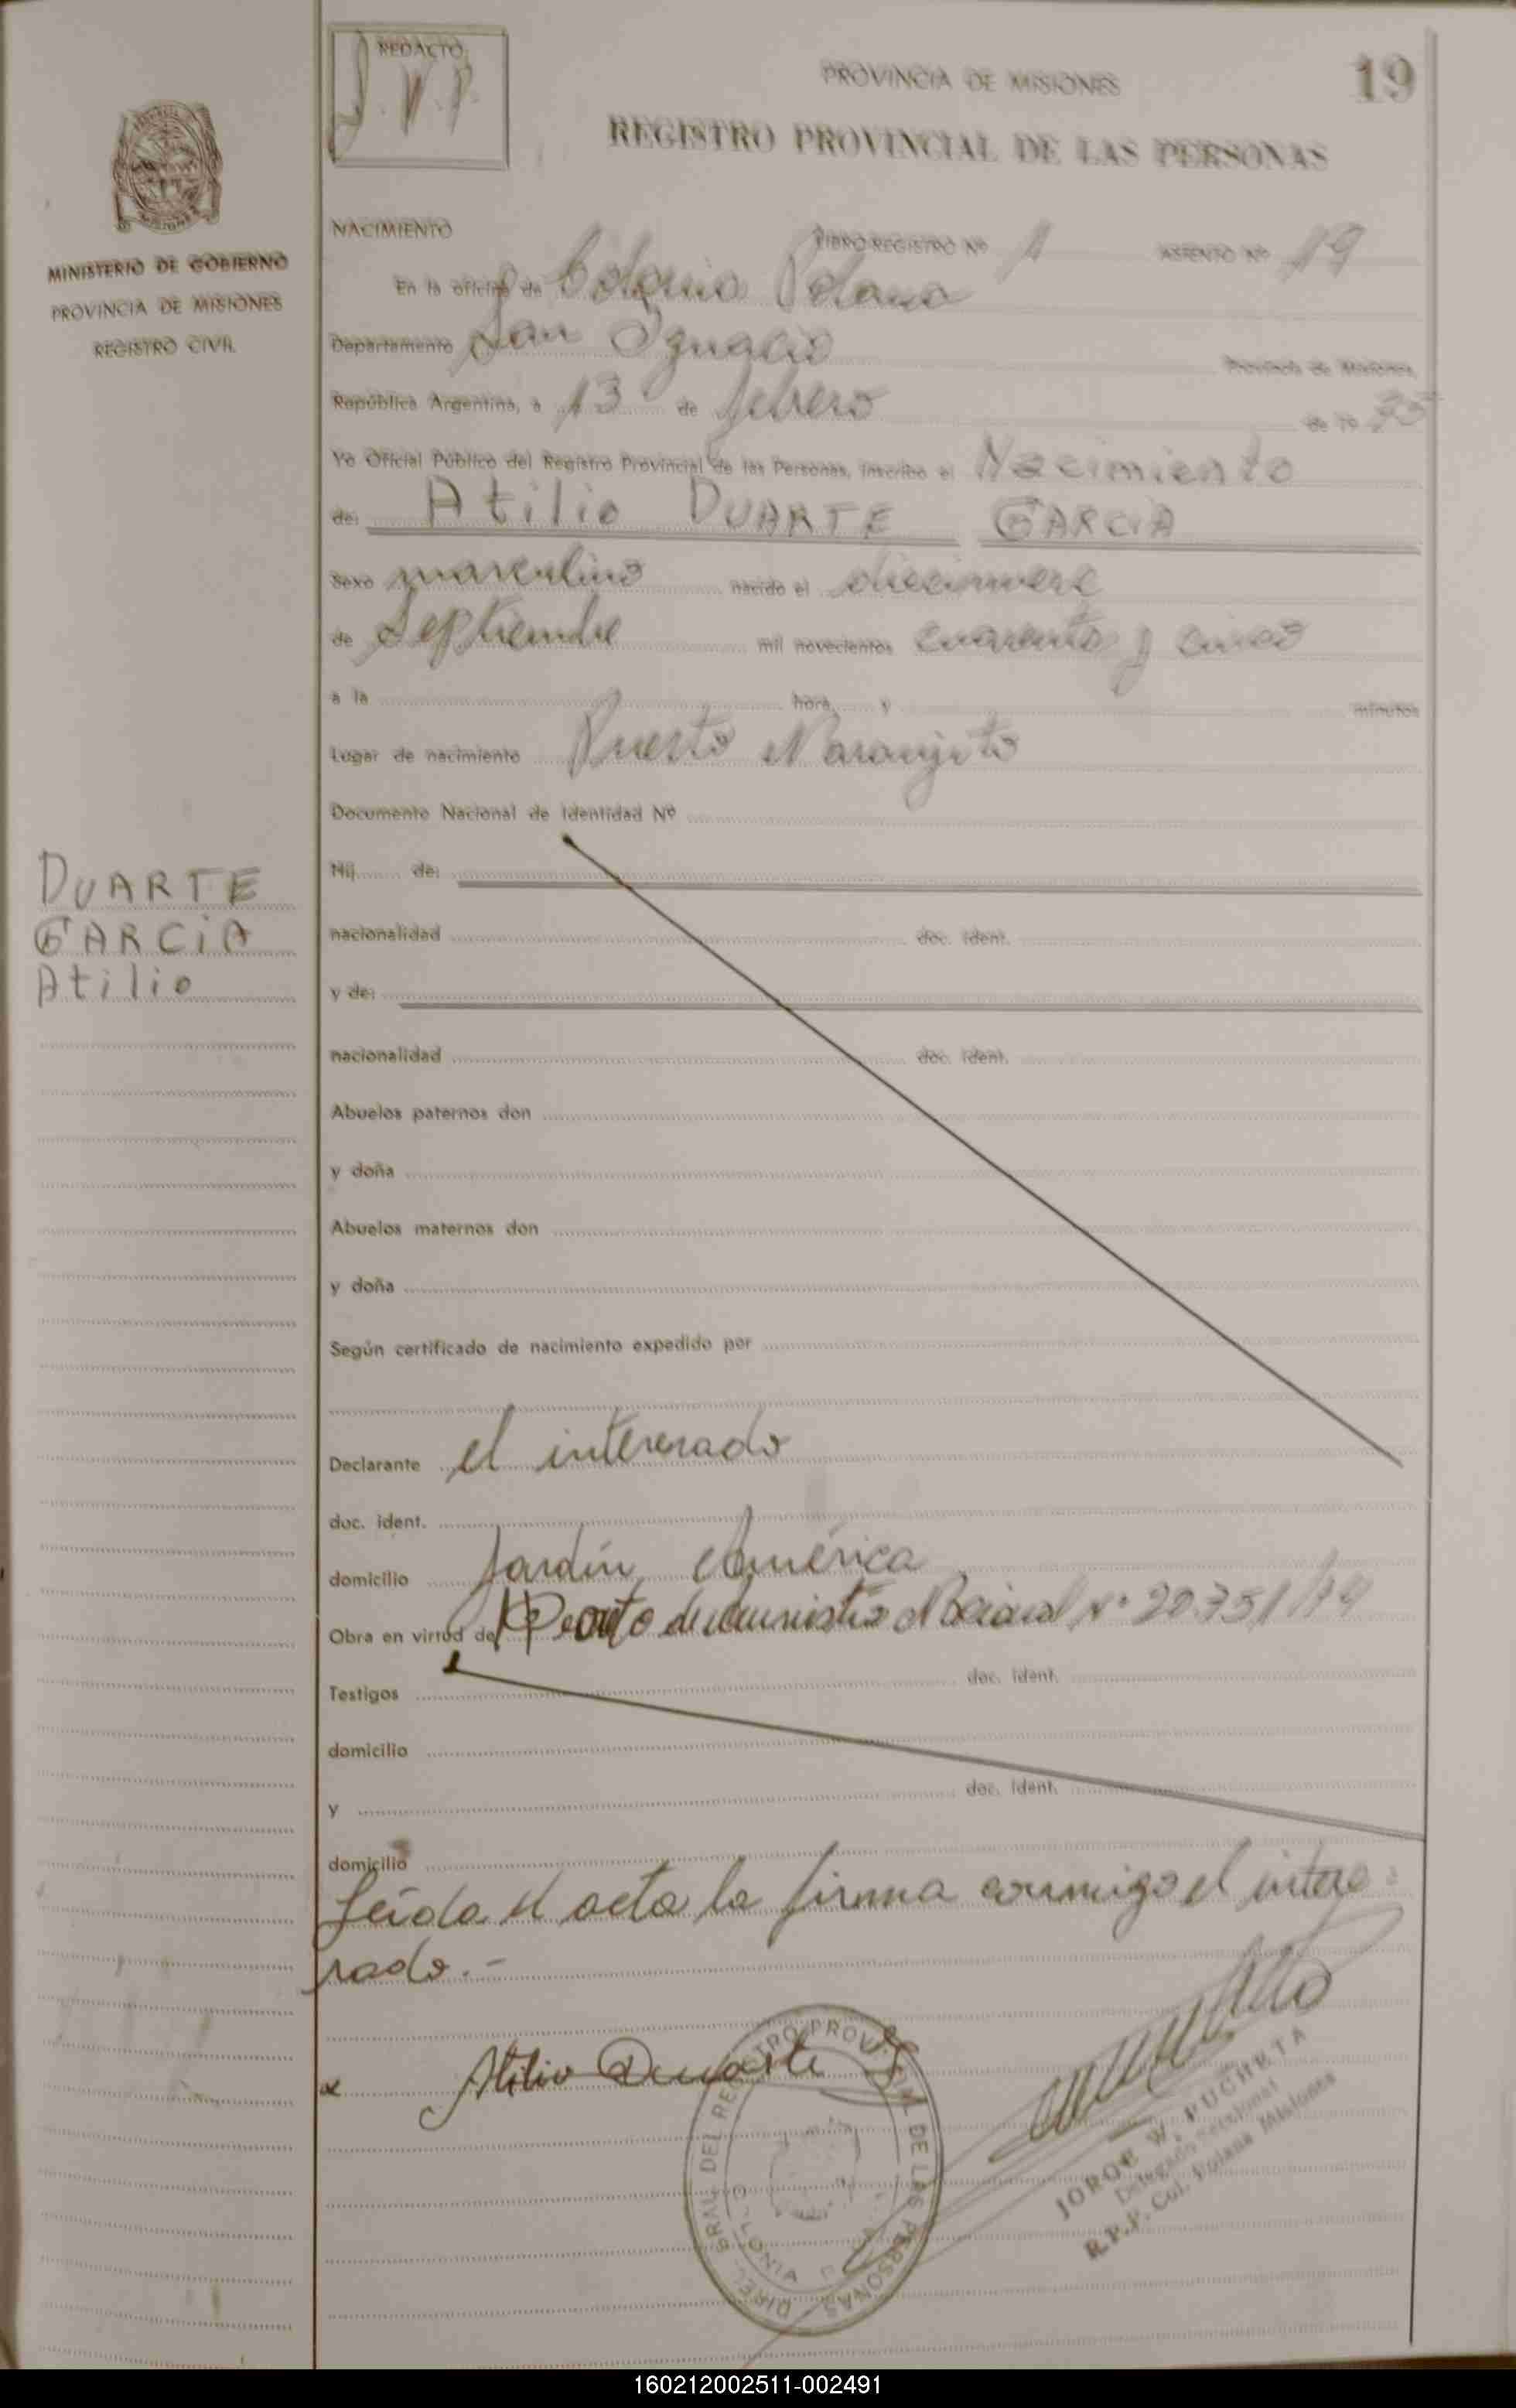 REDACTO:
J.V.P.
PROVINCIA DE MISIONES
19
REGISTRO PROVINCIAL DE LAS PERSONAS
MINISTERIO DE GOBIERNO
PROVINCIA DE MISIONES
REGISTRO CIVIL
NACIMIENTO LIBRO REGISTRO Nº 1 ASIENTO Nº 19
En la oficina de Colonia Polana
Departamento San Ignacio Provincia de Misiones,
República Argentina, a 13 de febrero de 19 75
Yo Oficial Público del Registro Provincial de las Personas, inscribo el Nacimiento
de: Atilio DUARTE GARCIA
Sexo masculino nacido el diecinueve
de Septiembre mil novecientos cuarenta y cinco
a la hora y minutos
Lugar de nacimiento Puerto Naranjito
Documento Nacional de Identidad Nº
DUARTE
GARCIA
Atilio
Hij de:
nacionalidad doc. ident.
y de:
nacionalidad doc. ident.
Abuelos paternos don
y doña
Abuelos maternos don
y doña
Según certificado de nacimiento expedido por
Declarante el interesado
doc. ident.
domicilio Jardín América
Obra en virtud de Decreto Nacional Nº 20.751/
Testigos doc. ident.
domicilio
y doc. ident.
domicilio
Leída el acta la firma conmigo el intere-
sado.-
x Atilio Duarte G
DIREC. GRAL. DEL REGISTRO PROVINCIAL DE LAS PERSONAS
COLONIA
JORGE W. PUCHETA
Delegado Seccional
R.P.P. Col. Polana Misiones
160212002511-002491